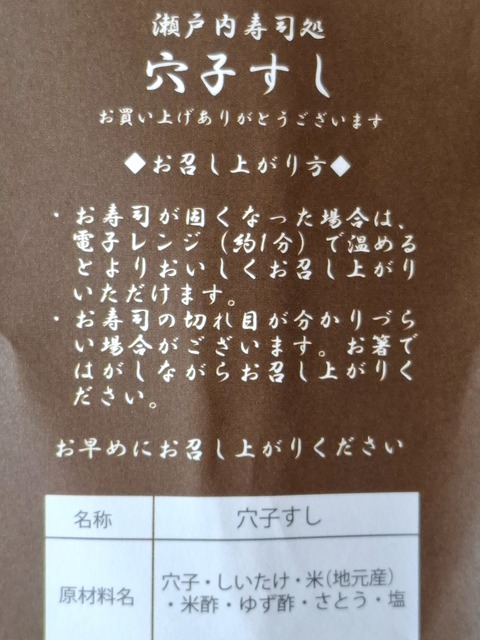 瀬戸内寿司処
穴子すし
お買い上げありがとうございます
◆お召し上がり方◆
・お寿司が固くなった場合は、
電子レンジ（約1分）で温める
とよりおいしくお召し上がり
いただけます。
・お寿司の切れ目が分かりづら
い場合がございます。お箸で
はがしながらお召し上がりく
ださい。
お早めにお召し上がりください
名称 穴子すし
原材料名 穴子・しいたけ・米（地元産）
・米酢・ゆず酢・さとう・塩